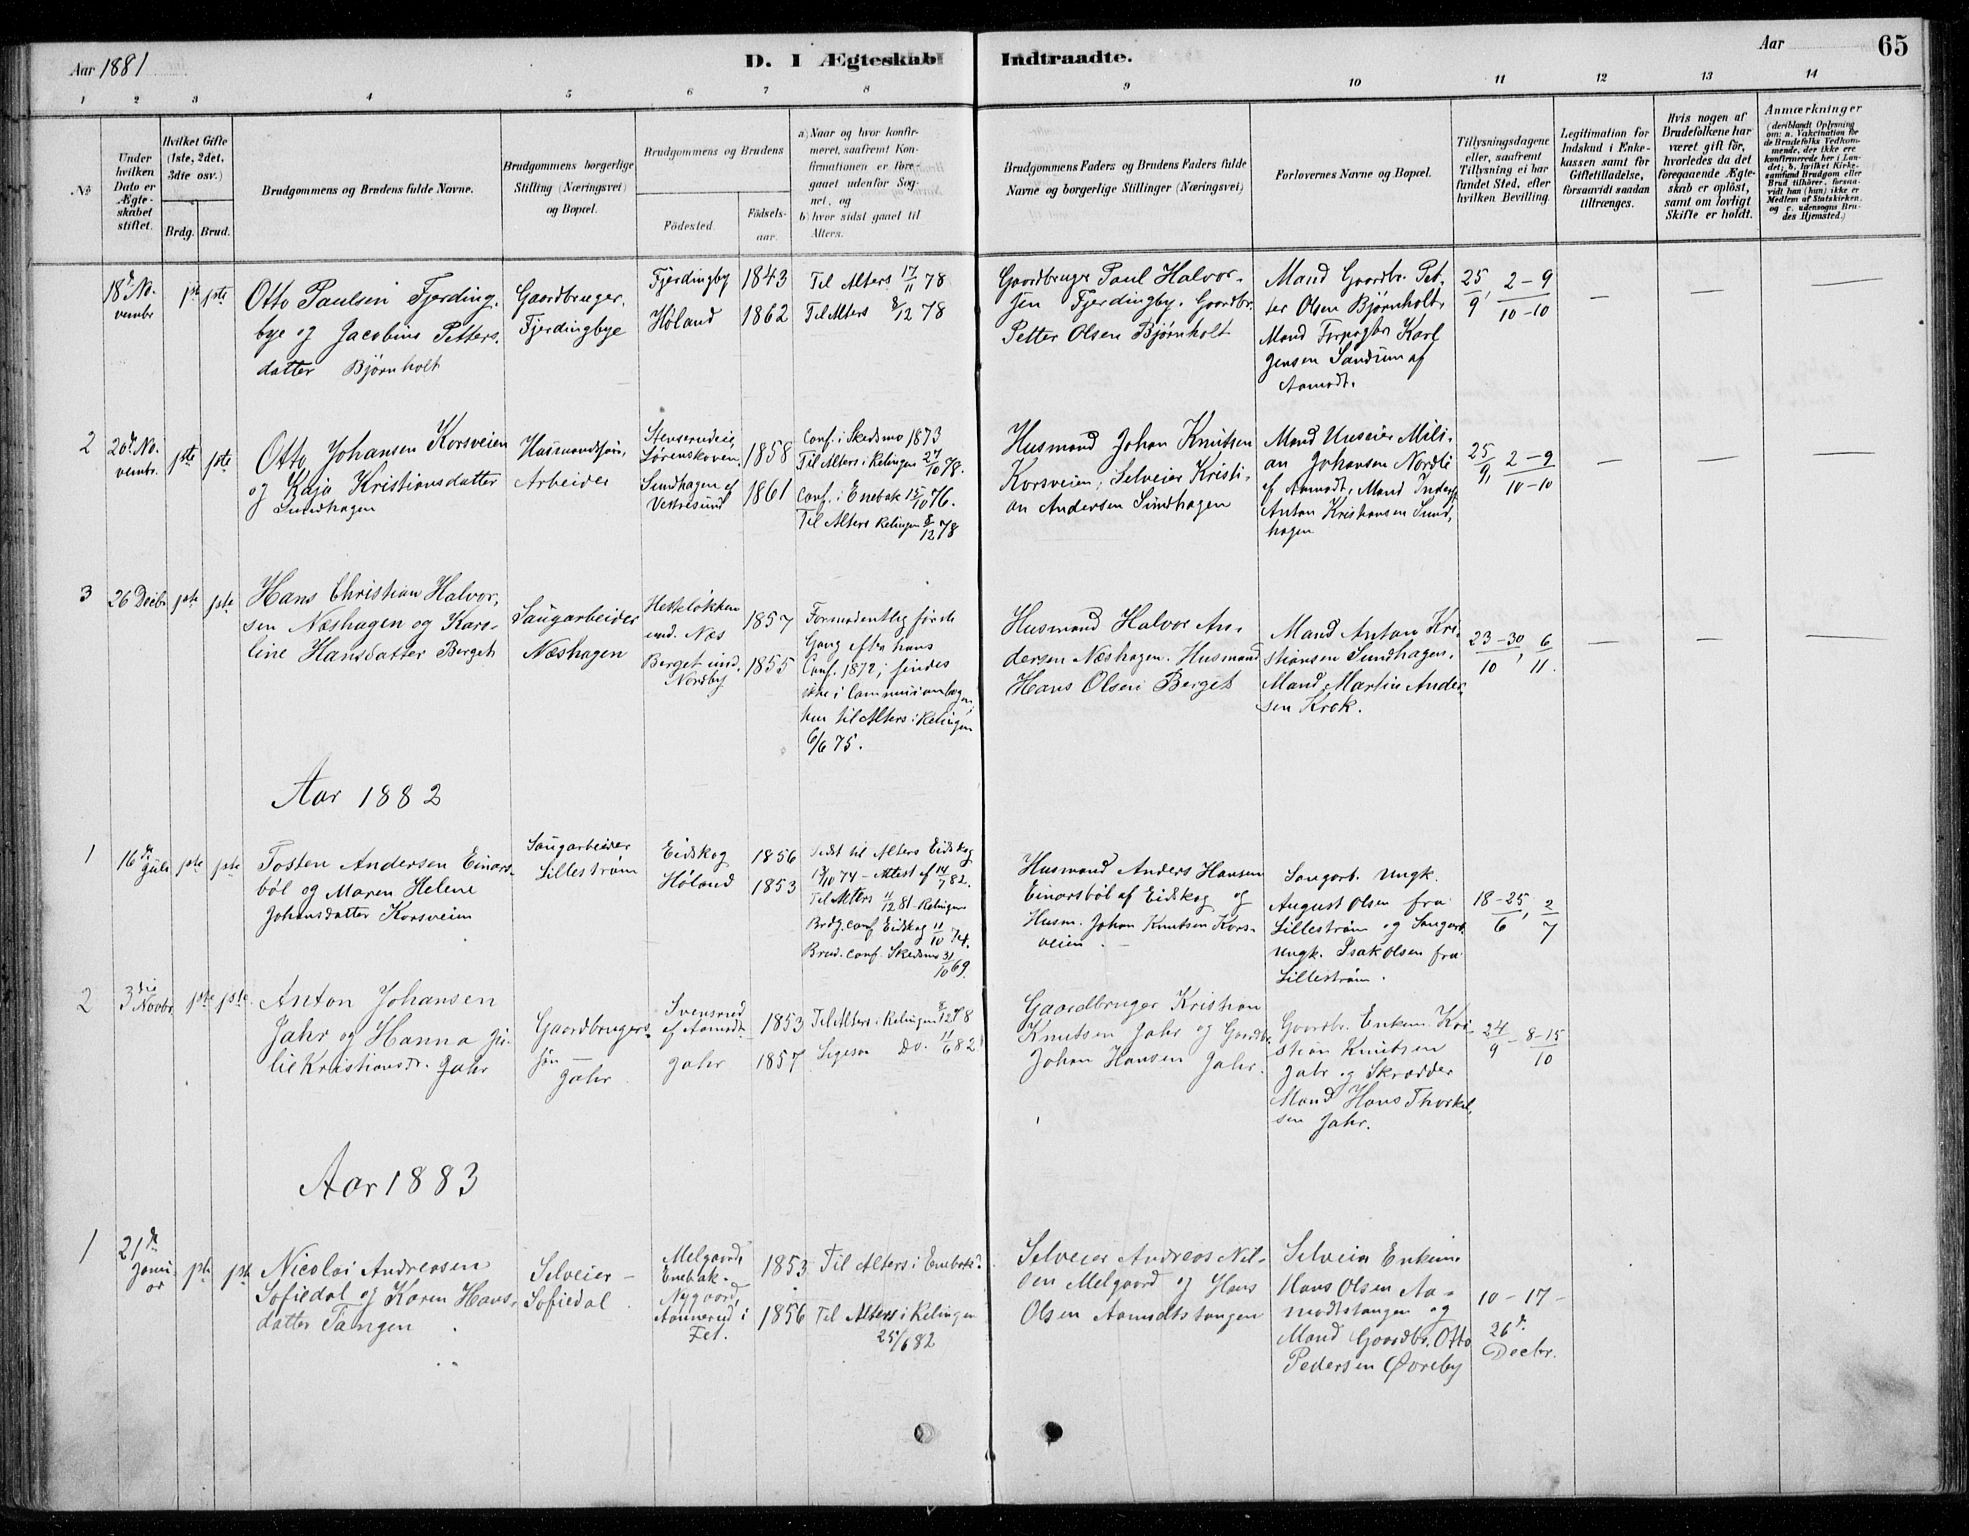 Aar 1881
D. I Ægteskab Indtraadte.
Aar
65
1 2 3 4 5 6 7 8 9 10 11 12 13 14
No
Under hvilken Dato er Ægteskabet stiftet.
Hvilket Gifte (1ste, 2det, 3die osv.)
Brdg. Brud.
Brudgommens og Brudens fulde Navne.
Brudgommens borgerlige Stilling (Næringsvei) og Bopæl.
Brudgommens og Brudens
Födested.
Födselsaar.
a) Naar og hvor konfirmeret, saafremt Konfirmationen er foregaaet udenfor Sognet, og
b) hvor sidst gaaet til Alters.
Brudgommens Faders og Brudens Faders fulde Navne og borgerlige Stillinger (Næringsvei)
Forlovernes Navne og Bopæl.
Tillysningsdagene eller, saafremt Tillysning ei har fundet Sted, efter hvilken Bevilling.
Legitimation for Indskud i Enkekassen samt for Giftetilladelse, forsaavidt saadan tiltrænges.
Hvis nogen af Brudefolkene har været gift før, hvorledes da det foregaaende Ægteskab er opløst, samt om lovligt Skifte er holdt.
Anmærkninger
(deriblandt Oplysning om: a. Vakcination for de Brudefolks Vedkommende, der ikke ere konfirmerede her i Landet; b. hvilket Kirkesamfund Brudgom eller Brud tilhører, forsaavidt han (hun) ikke er Medlem af Statskirken, og c. udensogns Brudes Hjemsted.)
18d No-
vembr
1ste 1ste
Otto Paulsen Fjerding-
bye og Jacobine Petters-
datter Bjørnholt
Gaardbruger,
Fjerdingbye
Fjerdingby 1843
Høland 1862
Til Alters 17/11 78
Til Alters 8/12 78
Gaardbruger Paul Halvor-
sen Fjerdingby. Gaardbr.
Petter Olsen Bjørnholt
Mand Gaardbr. Pet-
ter Olsen Bjørnholt,
Mand Karl
Jensen Sandum af
Aamodt.
25/9, 2-9/10-10
— — —
2
20d No-
vembr.
1ste 1ste
Otto Johansen Korsveien
og Kaja Kristiansdatter
Sundhagen
Husmandssøn,
Arbeider
Stenserudeie,
Sørenskoven 1858
Sundhagen af
Vestresund 1861
Conf. i Skedsmo 1873
Til Alters i Relingen 27/10 78.
Conf. i Enebak 15/10 76.
Til Alters Relingen 8/12 78
Husmand Johan Knutsen
Korsveien; Selveier Kristi-
an Andersen Sundhagen
Mand Huseier Mili-
an Johansen Nordli
af Aamodt, Mand Inderst
Anton Kristiansen Sund-
hagen
25/9, 2-9/10-10
— — —
3
26 Decbr
1ste 1ste
Hans Christian Halvor-
sen Næshagen og Karo-
line Hansdatter Berget
Saugarbeider
Næshagen
Hesteløkken
und. Næs 1857
Berget und.
Nordby 1855
Formodentlig første
Gang efter hans
Conf. 1872; findes
ikke i Communionbogen
hun til Alters i Relingen
6/6 75.
Husmand Halvor An-
dersen Næshagen. Husmand
Hans Olsen Berget
Mand Anton Kri-
stiansen Sundhagen.
Mand Martin Ander-
sen Krok.
23-30/10, 6/11.
— — —
Aar 1882
1
16de Juli
1ste 1ste
Tosten Andersen Einars-
böl og Maren Helene
Johansdatter Korsveien
Saugarbeider
Lillestrøm
Eidskog 1856
Høland 1853
Sidst til Alters Eidskog
18/10 74 - Attest af 14/7 82.
Til Alters 11/12 81 Relingen
Brdg. conf. Eidskog 11/10 74.
Brud. conf. Skedsmo 31/10 69.
Husmand Anders Hansen
Einarsböl af Eidskog og
Husm. Johan Knutsen Kors-
veien
Saugarb. Ungk.
August Olsen fra
Lillestrøm og Saugarb.
Ungk. Isak Olsen fra
Lillestrøm.
18-25/6, 2/7
2
3die Novbr
1ste 1ste.
Anton Johansen
Jahr og Hanna Ju-
lie Kristiansdr. Jahr
Gaardbrugers-
søn —
Jahr
Svensrud
af Aamodt 1853
Jahr 1857
Til Alters i Relingen 8/12 78
Ligesaa Do. 11/6 82
Gaardbruger Kristian
Knutsen Jahr og Gaardbr.
Johan Hansen Jahr.
Gaardbr. Enkem. Kri-
stian Knutsen
Jahr og Skrædder
Mand Hans Thorkel-
sen Jahr.
24/9 - 8-15/10
Aar 1883
1
21de
Janu-
ar
1ste 1ste
Nicolai Andreasen
Sofiedal og Karen Hans-
datter Tangen
Selveier —
Sofiedal
Melgaard i
Enebak 1853
Nygaard,
Aannerud i
Fet. 1856
Til Alters i Enebak
Til Alters i Relingen
25/6 82
Selveier Andreas Nil-
sen Melgaard og Hans
Olsen Aamodtstangen
Selveier Enkem.
Hans Olsen Aa-
modtstangen og
Mand Gaardbr. Otto
Pedersen Øvreby
10-17-
26d.
Decbr.